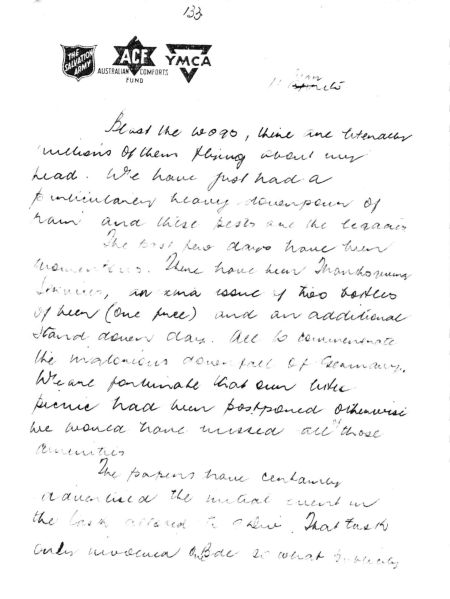 133
THE SALVATION ARMY
ACF
AUSTRALIAN COMFORTS FUND
YMCA
Blast the wogs, there are literally
millions of them flying about my
head. We have just had a
particularly heavy downpour of
rain and these pests are the legacies
The last few days have been
momentous. There have been Thanksgiving
Services, an xtra issue of two bottles
of beer (one free) and an additional
stand down day. All to commemorate
the inglorious down fall of Germany.
We are fortunate that our little
picnic had been postponed otherwise
we would have missed all those
amenities
The papers have certainly
advertised the initial event in
the task allotted to 9 Div. That task
only involved one Bde so what